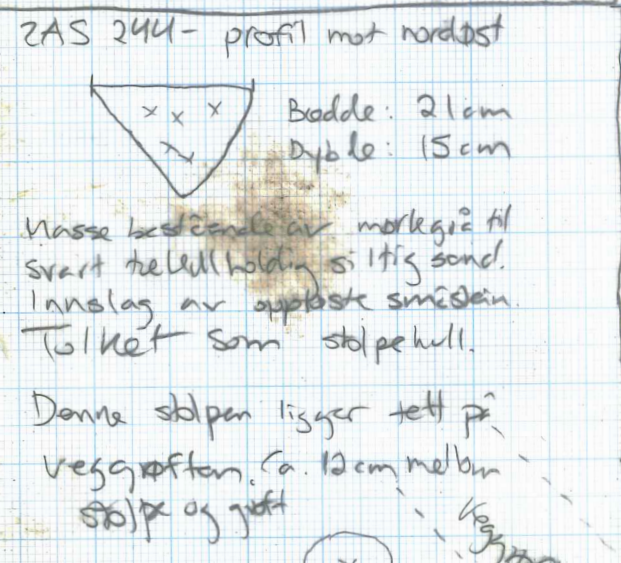 2AS 244 - profil mot nordøst
Bredde: 21cm
Dybde: 15cm
Masse bestående av mørkegrå til
svart trekullholdig siltig sand.
Innslag av oppløste småstein.
Tolket som stolpehull.
Denne stolpen ligger tett på
veggrøften. Ca. 12cm mellom
stolpe og grøft